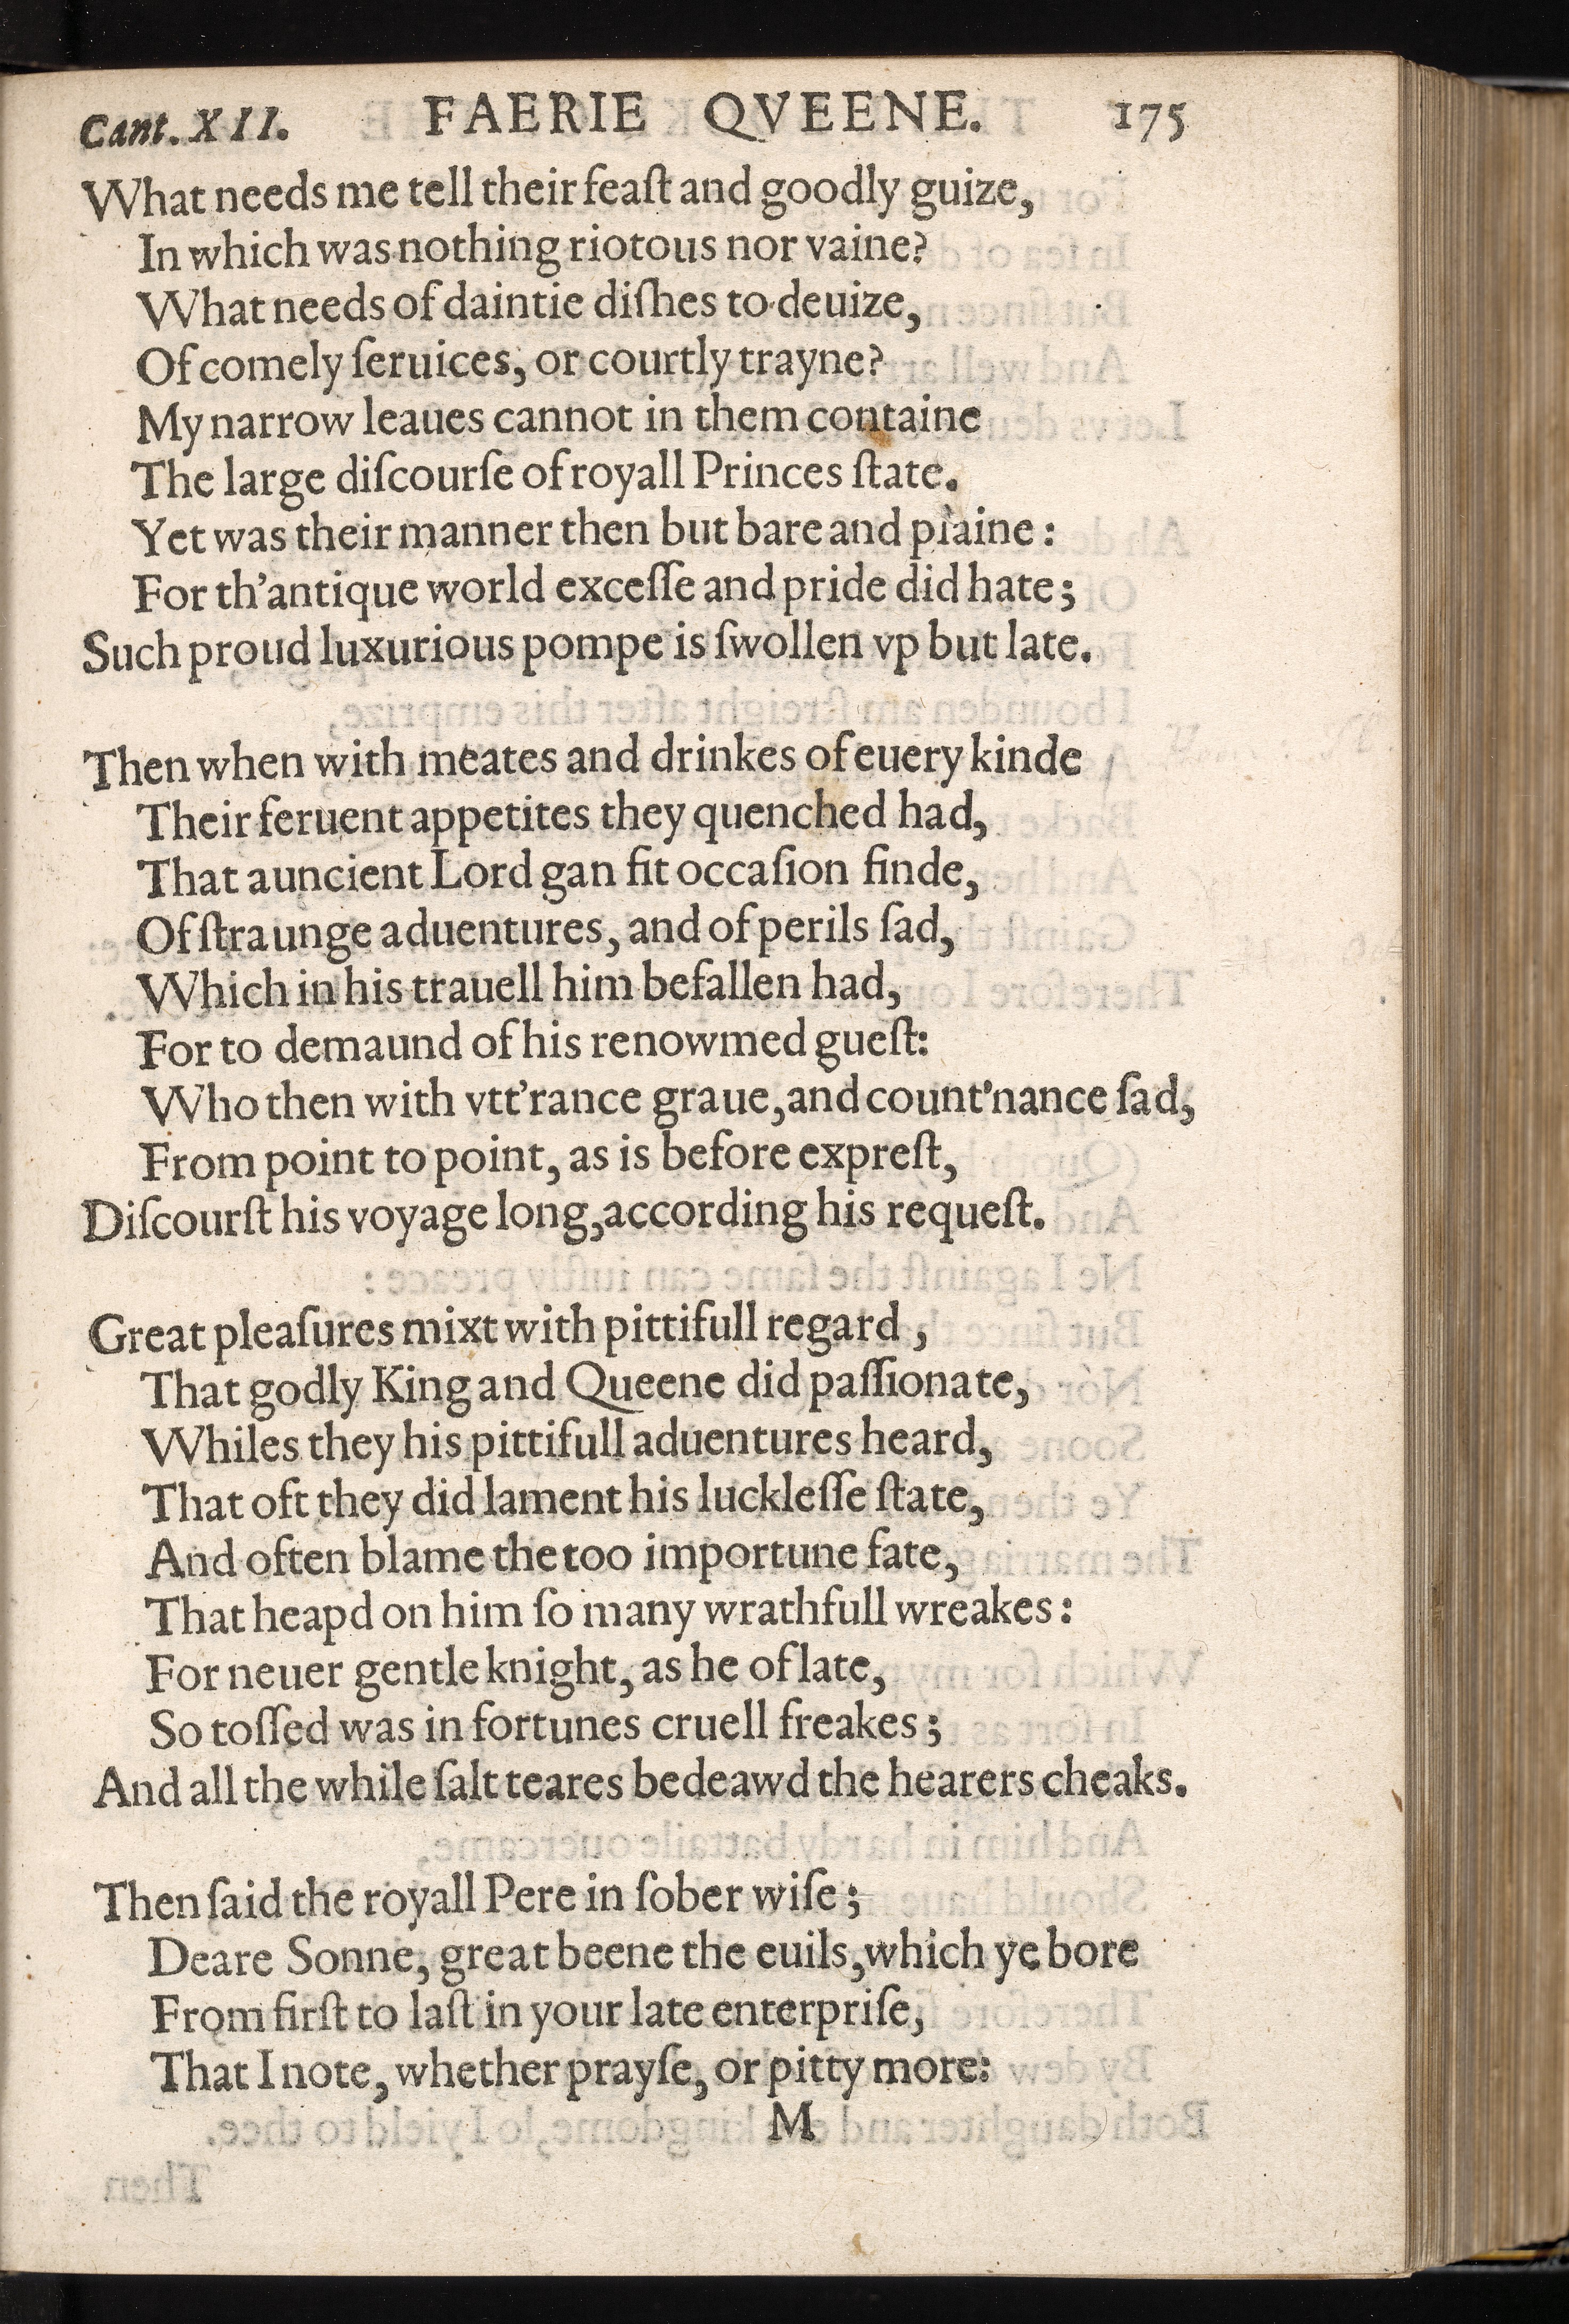 Cant. XII. FAERIE QVEENE. 175
What needs me tell their feaſt and goodly guize,
In which was nothing riotous nor vaine?
What needs of daintie diſhes to deuize,
Of comely ſeruices, or courtly trayne?
My narrow leaues cannot in them containe
The large diſcourſe of royall Princes ſtate.
Yet was their manner then but bare and plaine:
For th'antique world exceſſe and pride did hate;
Such proud luxurious pompe is ſwollen vp but late.
Then when with meates and drinkes of euery kinde
Their feruent appetites they quenched had,
That auncient Lord gan fit occaſion finde,
Of ſtraunge aduentures, and of perils ſad,
Which in his trauell him befallen had,
For to demaund of his renowmed gueſt:
Who then with vtt'rance graue, and count'nance ſad,
From point to point, as is before expreſt,
Diſcourſt his voyage long, according his requeſt.
Great pleaſures mixt with pittifull regard,
That godly King and Queene did paſſionate,
Whiles they his pittifull aduentures heard,
That oft they did lament his luckleſſe ſtate,
And often blame the too importune fate,
That heapd on him ſo many wrathfull wreakes:
For neuer gentle knight, as he of late,
So toſſed was in fortunes cruell freakes;
And all the while ſalt teares bedeawd the hearers cheaks.
Then ſaid the royall Pere in ſober wiſe;
Deare Sonne, great beene the euils, which ye bore
From firſt to laſt in your late enterpriſe,
That I note, whether prayſe, or pitty more:
M